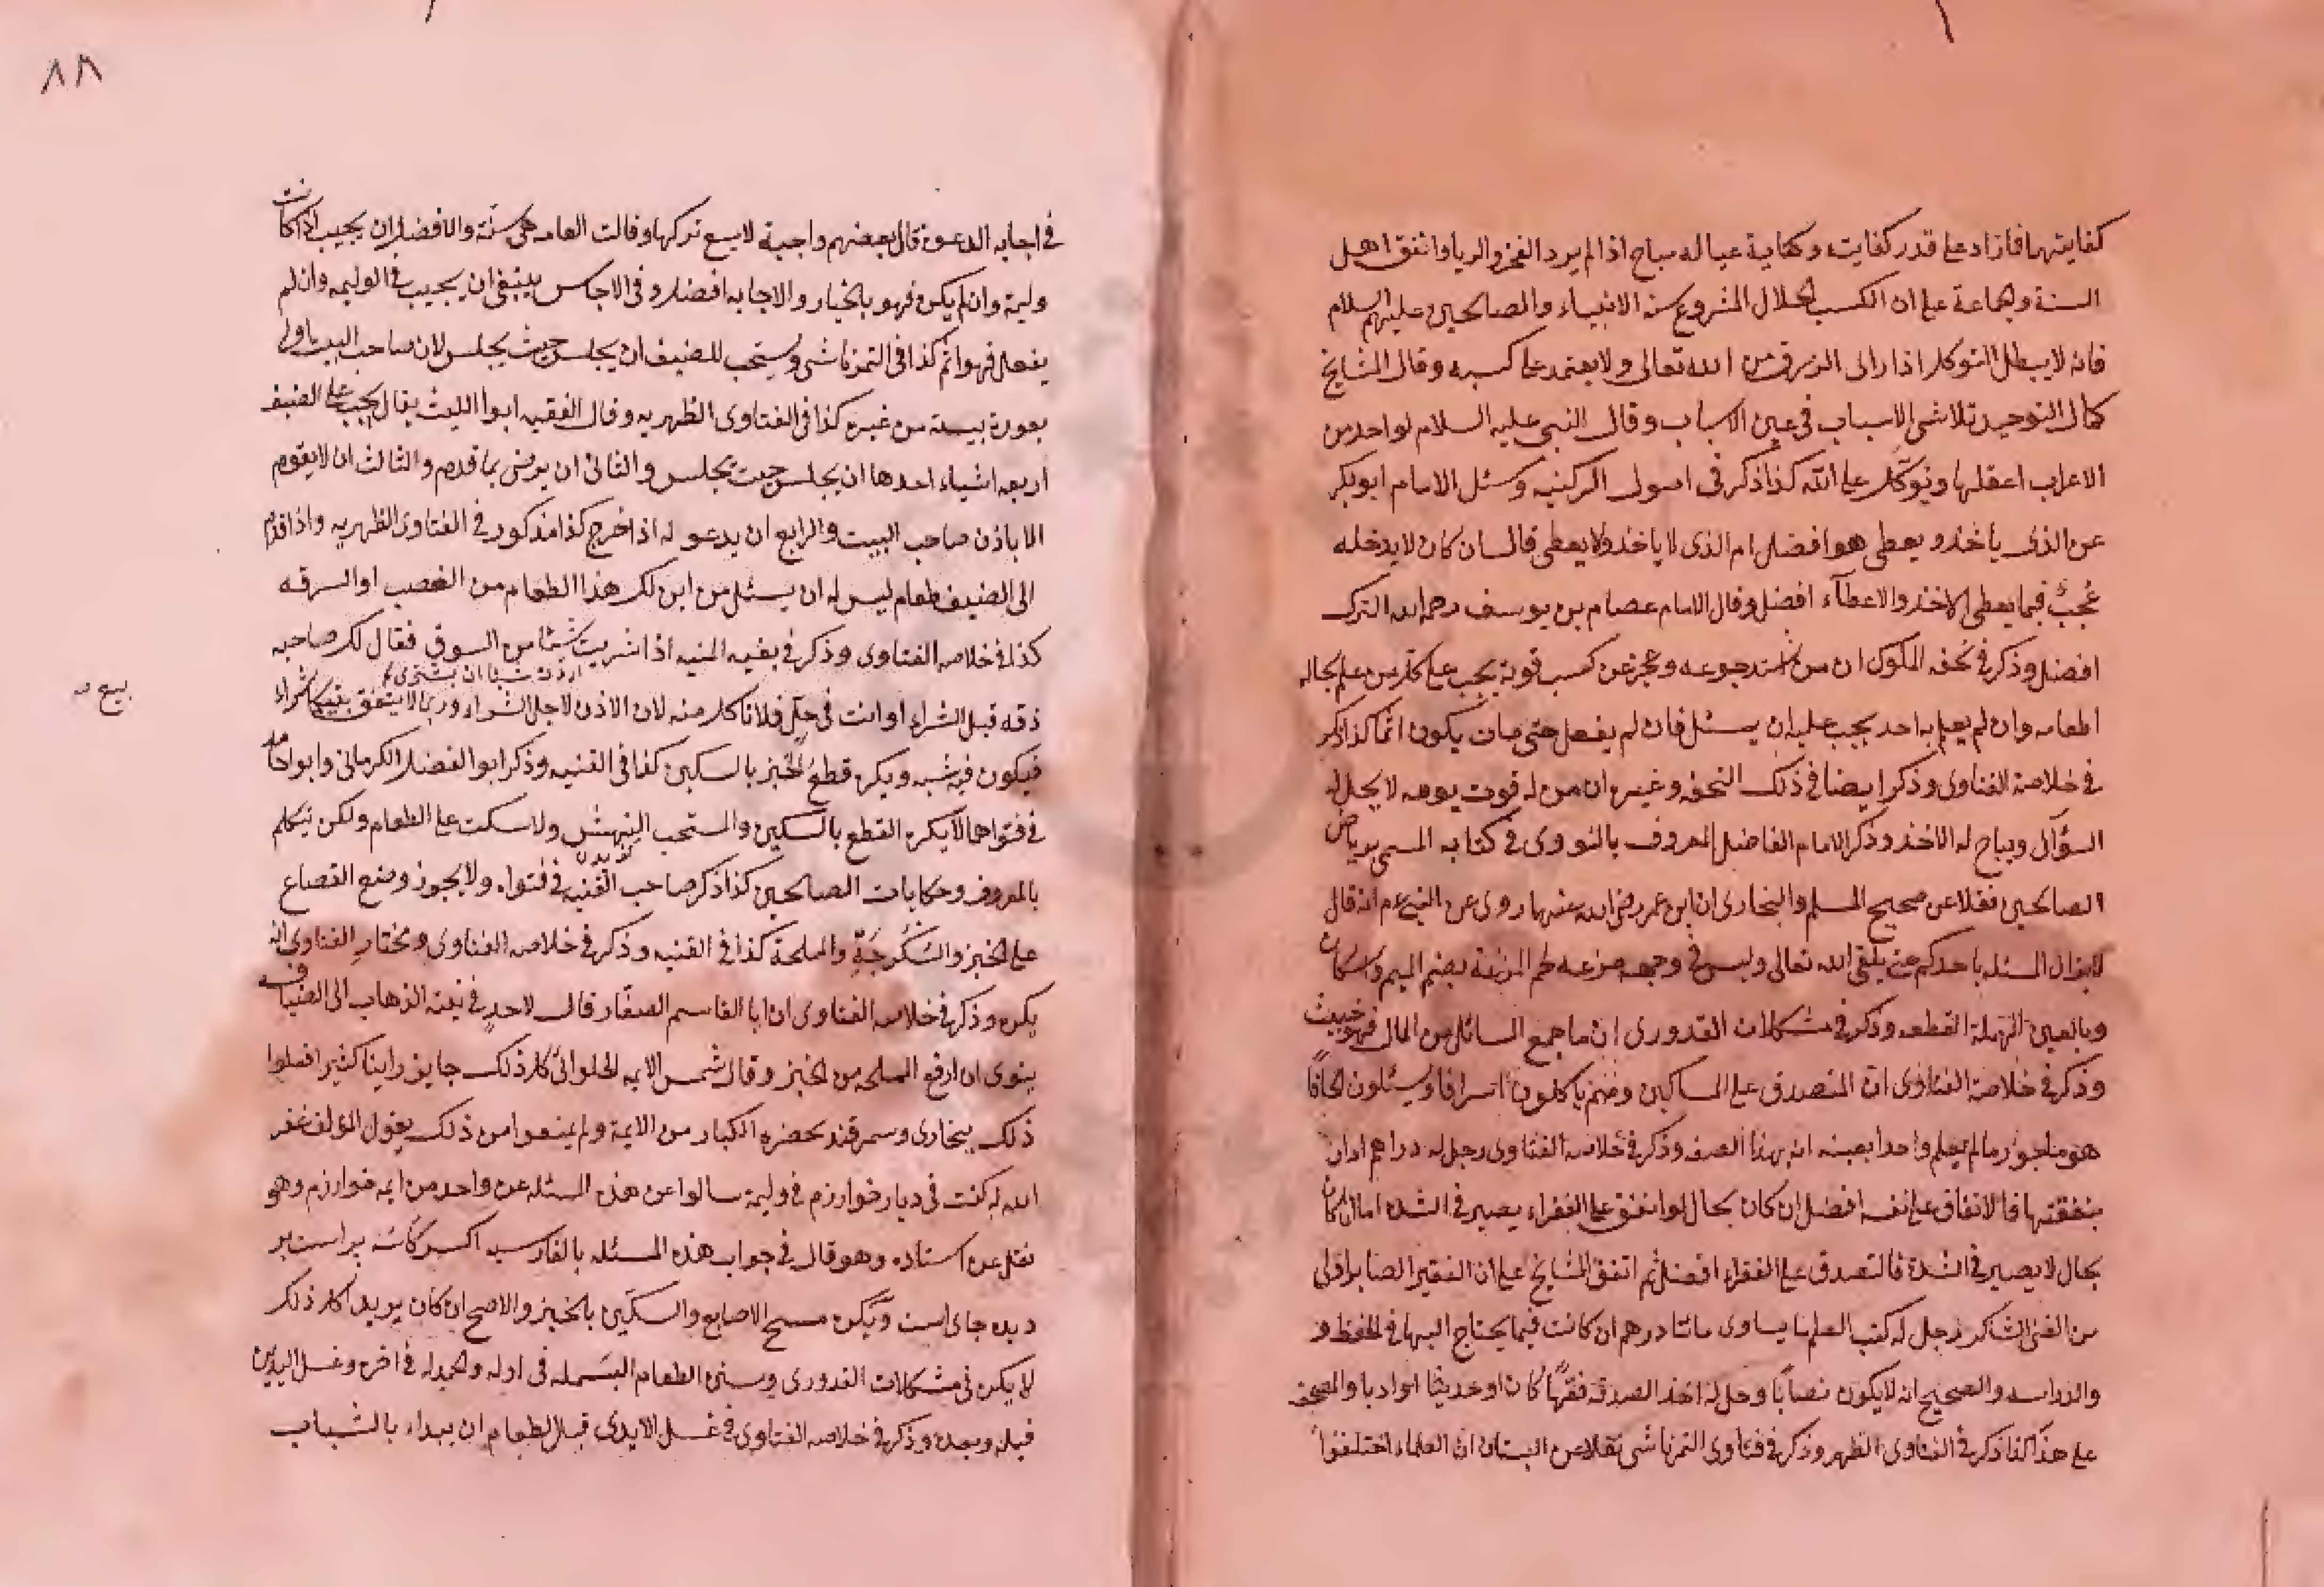 كفايتهما فازاد على قدر كفايته وكفاية عياله مباح اذا لم يرد الفخر والريا واتفق اهل
السنة والجماعة على ان الكسب الحلال المشروع سنة الانبياء والصالحين عليهم السلام
فانه لا يبطل التوكل اذا راى الرزق من الله تعالى ولا يعتمد على كسبه وقال المشايخ
كمال التوحيد تلاشى الاسباب في عين الاسباب وقال النبي عليه السلام لواحد من
الاعراب اعقلها وتوكل على الله كذا ذكر في اصول الركنيه وسئل الامام ابو بكر
عن الذي ياخذ ويعطى هو افضل ام الذي لا ياخذ ولا يعطى قال ان كان لا يدخله
عُجب فيما يعطى الاخذ والاعطآء افضل وقال الامام عصام بن يوسف رحمه الله الترك
افضل وذكر في تحفه الملوك ان من اشتد جوعه وعجز عن كسب قوته يجب على كل من علم بحاله
اطعامه وان لم يعلم به احد يجب عليه ان يسئل فان لم يفعل حتى مات يكون اثما كذا ذكر
في خلاصة الفتاوى وذكر ايضا في ذلك التحفه وغيره ان من له قوت يومه لا يحل له
السؤال ويباح له الاخذ وذكر الامام الفاضل المعروف بالنووى في كتابه المسمى برياض
الصالحين نقلا عن صحيح المسلم والبخارى ان ابن عمر رضى الله عنهما روى عن النبي عم انه قال
لا يزال المسئله باحدكم حتى يلقى الله تعالى وليس في وجهه مزعه لحم المزعة بضم الميم واسكان
وبالعين المهملة القطعه وذكر في مشكلات القدورى ان ما جمع السائل من المال فهو خبيث
وذكر في خلاصة الفتاوى ان المتصدق على المساكين وهم ياكلون اسرافا ويسئلون الحافًا
هو ماجور ما لم يعلم واحدا بعينه انه بهذا الصفه وذكر في خلاصه الفتاوى رجل له دراهم اراد ان
ينفقتها فالانفاق على نفسه افضل ان كان بحال لو انفق على الفقراء يصير في الشده اما ان كان
بحال لا يصير في الشدة فالتصدق على الفقراء افضل ثم اتفق المشايخ على ان الفقير الصابر اولى
من الغنى الشاكر رجل له كتب العلم ما يساوى مائتا درهم ان كانت فيما يحتاج اليها في الحفظ و
والدراسه والصحيح انه لا يكون نصابًا وحل له اخذ الصدقه فقهًا كان او حديثا او ادبا والمصحف
على هذا كذا ذكر في الفتاوى الظهر وذكر في فتاوى التمرتاشى نقلا عن البستان ان العلماء اختلفوا
٨٨
في اجابه الدعوة قال بعضهم واجبة لا يسع تركها وقالت العامه هى سنة والافضل ان يجيب اذا كانت
وليمة وان لم يكن فهو بالخيار والاجابه افضل وفى الاجناس ينبغى ان يجيب في الوليمه وان لم
يفعل فهو اثم كذا في التمرتاشى ويستحب للضيف ان يجلس حيث يجلس لان صاحب البيت اولى
بعورة بيته من غيره كذا في الفتاوى الظهريه وقال الفقيه ابوا الليث يقال يجب على الضيف
اربعه اشياء احدها ان يجلس حيث يجلس والثانى ان يرضى بما قدم والثالث ان لا يقوم
الا باذن صاحب البيت والرابع ان يدعو له اذا خرج كذا مذكور في الفتاوى الظهريه واذا قدم
الى الضيف طعام ليس له ان يسئل من اين لك هذا الطعام من الغصب او السرقه
كذا في خلاصه الفتاوى وذكر في بغيه المنيه اذا اشريت شيئا من السوق فقال لك صاحبه
اردت شيئا ان يشترى
ذقه قبل الشراء او انت في حل فلا تاكل منه لان الاذن لاجل الشراء وربما لا يتفق بينهما شراء
بيع
فيكون فيه شبه ويكره قطع الخبز بالسكين كذا في القنيه وذكر ابو الفضل الكرمانى وابو حامد
في فتواهما لا يكره القطع بالسكين والمستحب النهش ولا سكت على الطعام ولكن يتكلم
بالمعروف وحكايات الصالحين كذا ذكر صاحب القنيه في فتواه ولا يجوز وضع القصاع
على الخبز والسُّكُرجَةِ والملحة كذا في القنيه وذكر في خلاصه الفتاوى ومختار الفتاوى انه
يكره وذكر في خلاصه الفتاوى ان ابا القاسم الصفّار قال لاحدٍ في نية الذهاب الى الضيافه
ينوى ان ارفع الملحه من الخبز وقال شمس الايمه الحلوائى كل ذلك جايز راينا كثير افعلوا
ذلك ببخارى وسمرقند بحضره الكبار من الايمة ولم يمنعوا من ذلك يقول المؤلف غفر
الله له كنت في ديار خوارزم في وليمة سالوا عن هذه المسئله عن واحد من ايمه خوارزم وهو
نقل عن استاده وهو قال في جواب هذه المسئله بالفارسيه اكر كاسه براست بر
ديده جاى است ويكره مسح الاصابع والسكين بالخبز والاصح ان كان يريد اكل ذلك
لا يكره في مشكلات القدورى وسنن الطعام البسمله في اوله والحمدله في اخره وغسل اليدين
قبله وبعده وذكر في خلاصه الفتاوى في غسل الايدى قبل الطعام ان يبداء بالشباب